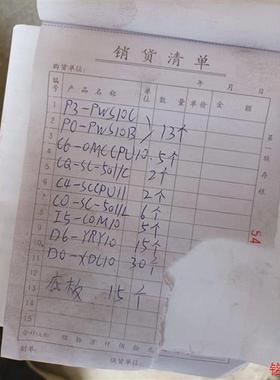 销货清单
购货单位： 年 月 日
编号 产品名称 单位 数量 单价 金额
1 P3-PWS10C
2 P0-PWS10B 13个
3 C6-OMCCPU10 5个
4 CQ-SC-5011C 2个
5 C4-SCCPU11 2个
6 C0-SC-5011L 6个
7 I5-COM10 5个
8 D6-YRY10 15个
9 D0-XDC10 30个
10
11 底板 15个
12
13
15
合计(大写)
制单： 供货单位：